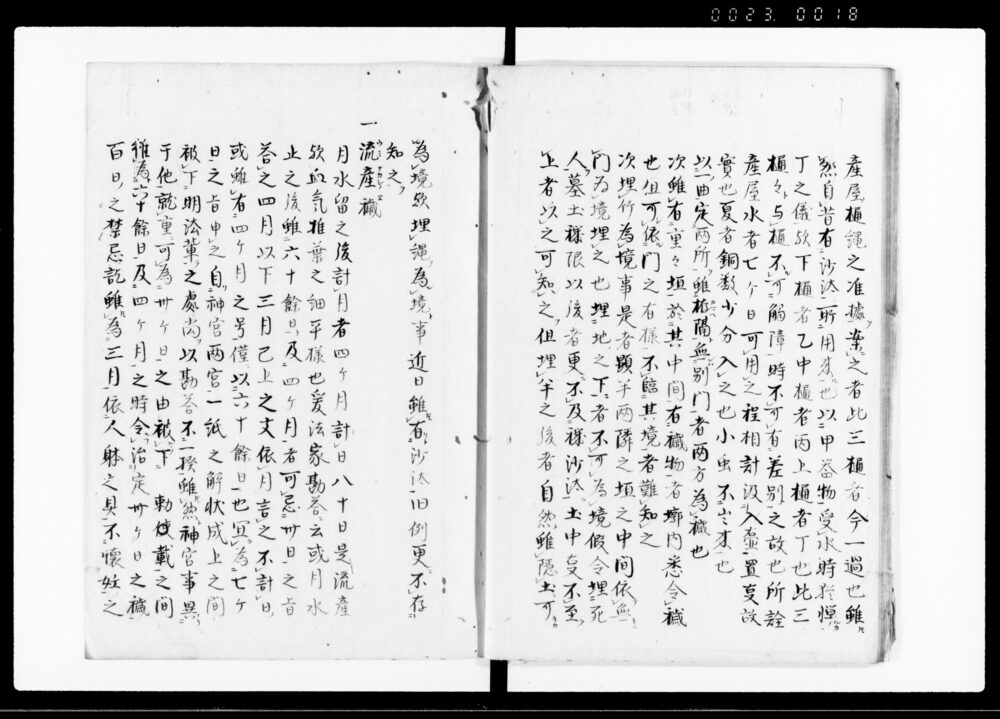 0023. 0018
産屋樋縄之准據案之者此三樋者今一過也雖
然自昔有沙汰所用来也以甲番物受水時於悼
丁之儀欤下樋者乙中樋者丙上樋者丁也此三
樋々与樋不可觸障時不可有差別之故也所詮
産屋水者七ヶ日可用之程相計汲入壺置支故
實也夏者銅数少分入之也小虫不出来也
以一曲定两所雖拒隔無別門者两方為穢也
次雖有重々垣於其中間有穢物者墎内悉令穢
也但可依門之有様不臨其境者難知之
次埋竹為境事是者顕半两隣之垣之中間依無
門為境埋之也埋地之下者不可為境假令埋死
人墓土裸限以後者更不及禄沙汰土中支不至
上者以之可知之但埋半之後者自然雖隠土可
為境欤埋縄為境事近日雖有沙汰旧例更不存
知之
一
流産穢
月水留之後計月者四ヶ月計日八十日是流産
欤血氣推葉之細平様也爰法家勘荅云或月水
止之後雖六十餘日及四ヶ月者可忌卅日之旨
荅之四月以下三月已上之文依月言之不計日
或雖有四ヶ月之号僅以六十餘日也冝為七ヶ
日之旨申之自神宮两宮一紙之解状成上之間
被下明法輩之處尚以勘荅不一揆雖然神宮事異
于他就重可為卅ヶ日之由被下勅使載之間
雖為六十餘日及四ヶ月之時令治定卅ヶ日之穢
百日之禁忌訖雖為三月依人躰之具不懐妊之